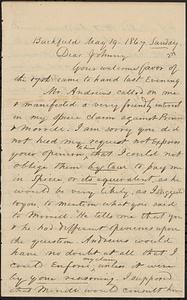 Buckfield May 19. 1867 Sunday.
Dear Johnny
Your welcome favor of
the 17th came to hand last Evening
Mr. Andrews called on me
& manifested a very friendly interest
in my specie claim against
& Morrill. I am sorry you did
not heed my request not express
your opinion, that I could not
oblige them by law to pay me
in Specie or its equivalent, as he
would be very likely, as I
you, to mention what you said
to Morrill. He tells me that you
& he had different opinions upon
the question. Andrews would
have no doubt at all that
I could enforce my claim, unless it were
by your reasoning. I supposed
that Morrill would consult him